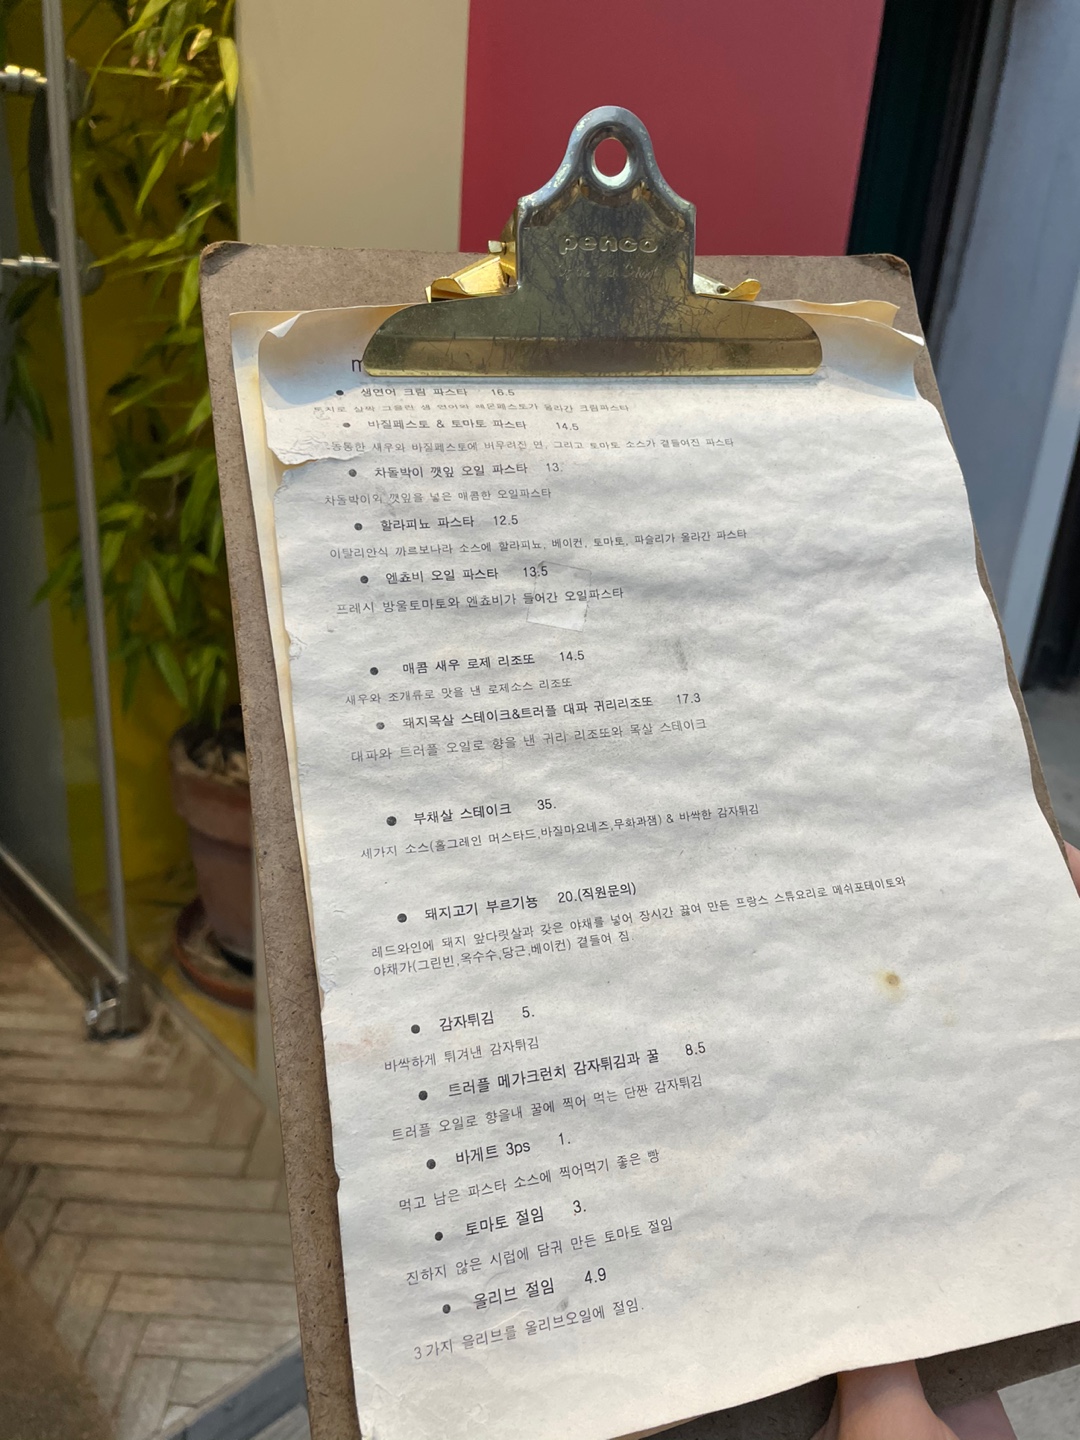 penco
m
● 생연어 크림 파스타 16.5
토치로 살짝 그을린 생 연어와 레몬페스토가 올라간 크림파스타
● 바질페스토 & 토마토 파스타 14.5
통통한 새우와 바질페스토에 버무려진 면, 그리고 토마토 소스가 곁들어진 파스타
● 차돌박이 깻잎 오일 파스타 13.
차돌박이와 깻잎을 넣은 매콤한 오일파스타
● 할라피뇨 파스타 12.5
이탈리안식 까르보나라 소스에 할라피뇨, 베이컨, 토마토, 파슬리가 올라간 파스타
● 엔쵸비 오일 파스타 13.5
프레시 방울토마토와 엔쵸비가 들어간 오일파스타
● 매콤 새우 로제 리조또 14.5
새우와 조개류로 맛을 낸 로제소스 리조또
● 돼지목살 스테이크&트러플 대파 귀리리조또 17.3
대파와 트러플 오일로 향을 낸 귀리 리조또와 목살 스테이크
● 부채살 스테이크 35.
세가지 소스(홀그레인 머스타드,바질마요네즈,무화과잼) & 바싹한 감자튀김
● 돼지고기 부르기뇽 20.(직원문의)
레드와인에 돼지 앞다릿살과 갖은 야채를 넣어 장시간 끓여 만든 프랑스 스튜요리로 메쉬포테이토와
야채가(그린빈,옥수수,당근,베이컨) 곁들여 짐.
● 감자튀김 5.
바싹하게 튀겨낸 감자튀김
● 트러플 메가크런치 감자튀김과 꿀 8.5
트러플 오일로 향을내 꿀에 찍어 먹는 단짠 감자튀김
● 바게트 3ps 1.
먹고 남은 파스타 소스에 찍어먹기 좋은 빵
● 토마토 절임 3.
진하지 않은 시럽에 담궈 만든 토마토 절임
● 올리브 절임 4.9
3가지 올리브를 올리브오일에 절임.